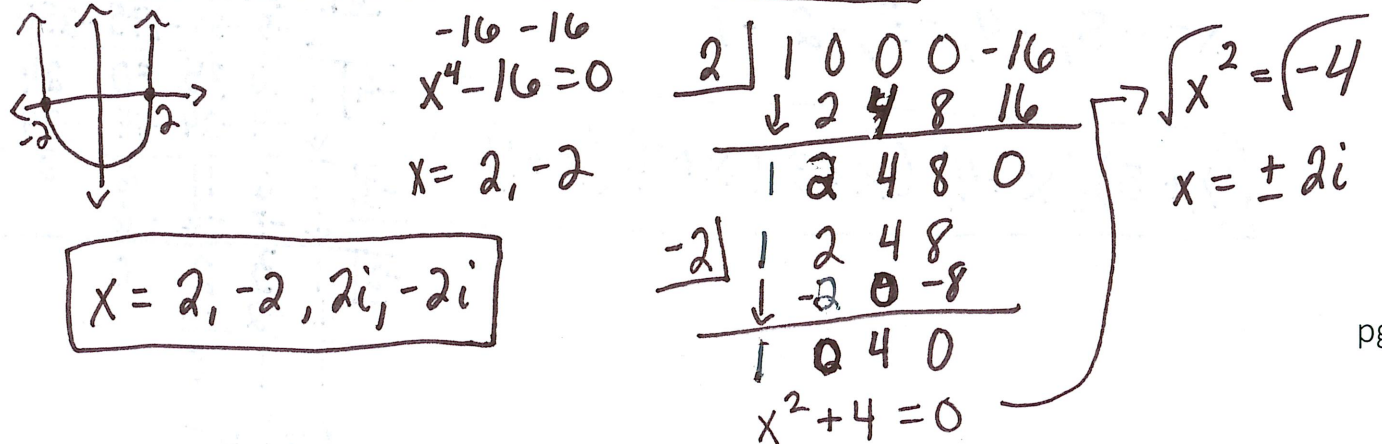 -2 2
-16 -16
x⁴-16=0
x= 2, -2
x= 2, -2, 2i, -2i
2 | 1 0 0 0 -16
↓ 2 4 8 16
1 2 4 8 0
-2 | 1 2 4 8
↓ -2 0 -8
1 0 4 0
x²+4=0
√x² = √-4
x = ± 2i
pg